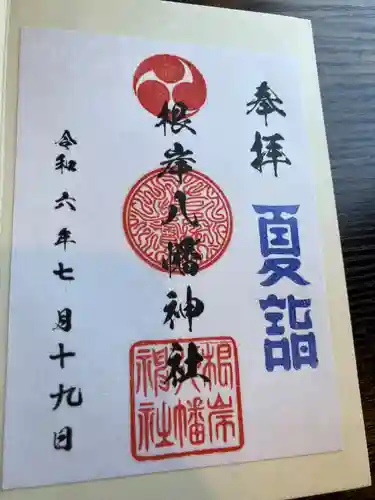 奉拝
夏詣
根岸八幡神社
根岸
八幡
神社
令和六年七月十九日